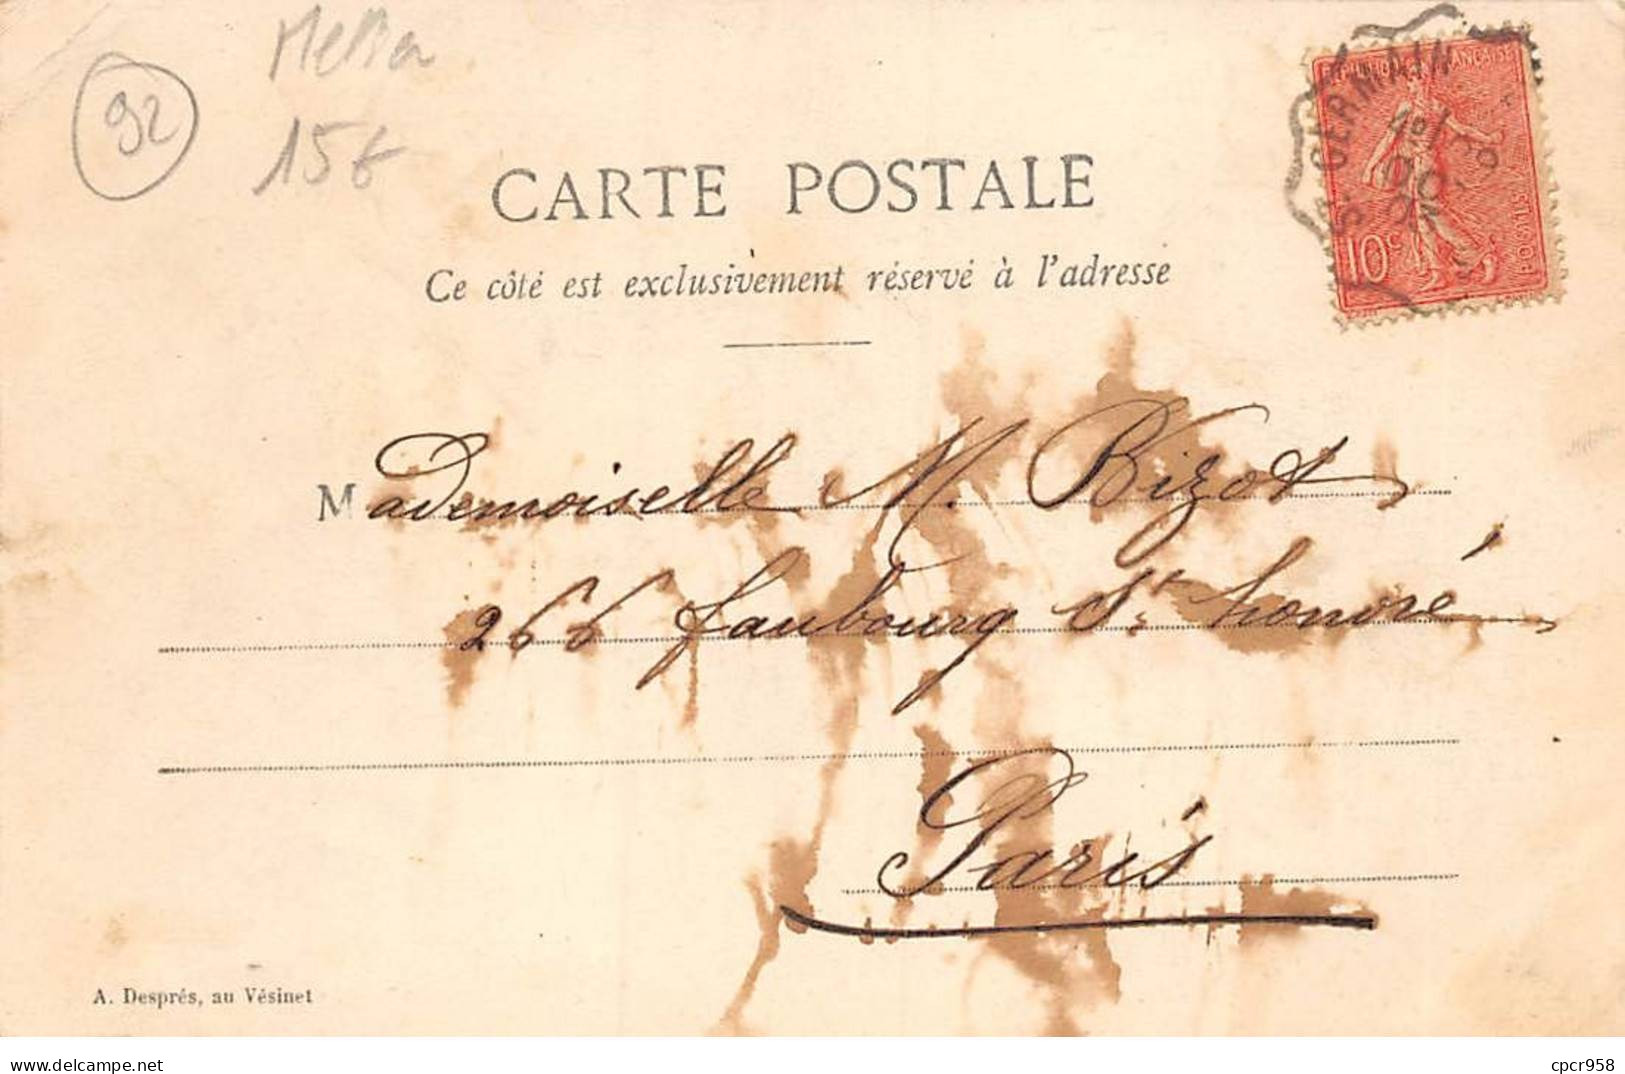 92
15€
CARTE POSTALE
Ce côté est exclusivement réservé à l'adresse
GERMAIN
FRANÇAISE
10c
POSTES
Mademoiselle M. Bizot
266 faubourg St honoré
Paris
A. Després, au Vésinet
delcampe.net
cpcr958